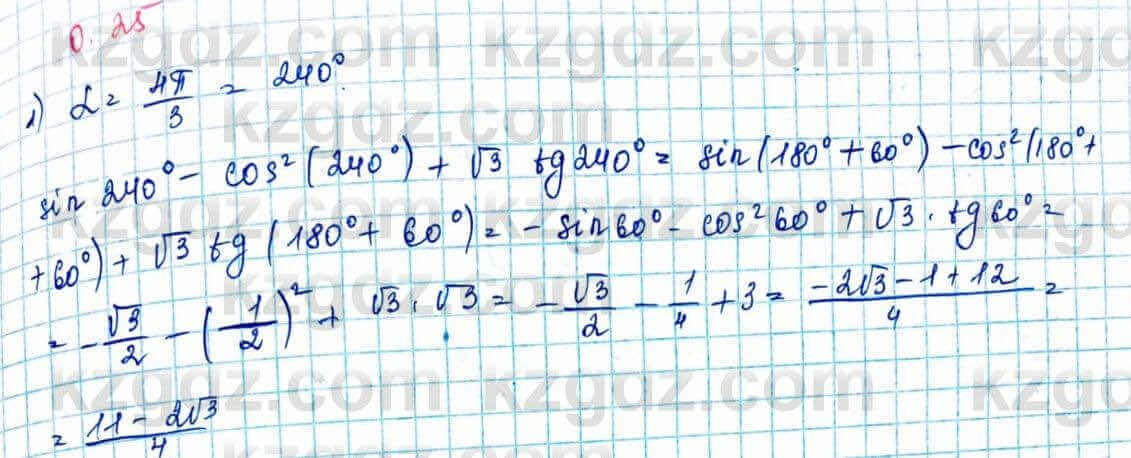 0.25
1) α = 4π/3 = 240°.
sin 240° - cos² (240°) + √3 tg 240° = sin (180° + 60°) - cos² (180° +
+ 60°) + √3 tg (180° + 60°) = - sin 60° - cos² 60° + √3 · tg 60° =
= - √3/2 - (1/2)² + √3 · √3 = - √3/2 - 1/4 + 3 = (-2√3 - 1 + 12)/4 =
= (11 - 2√3)/4
kzgdz.com kzgdz.com kzgdz.com
kzgdz.com kzgdz.com
kzgdz.com kzgdz.com
kzgdz.com kzgdz.com
kzgdz.com kzgdz.com kzgdz.com
kzgdz.com kzgdz.com